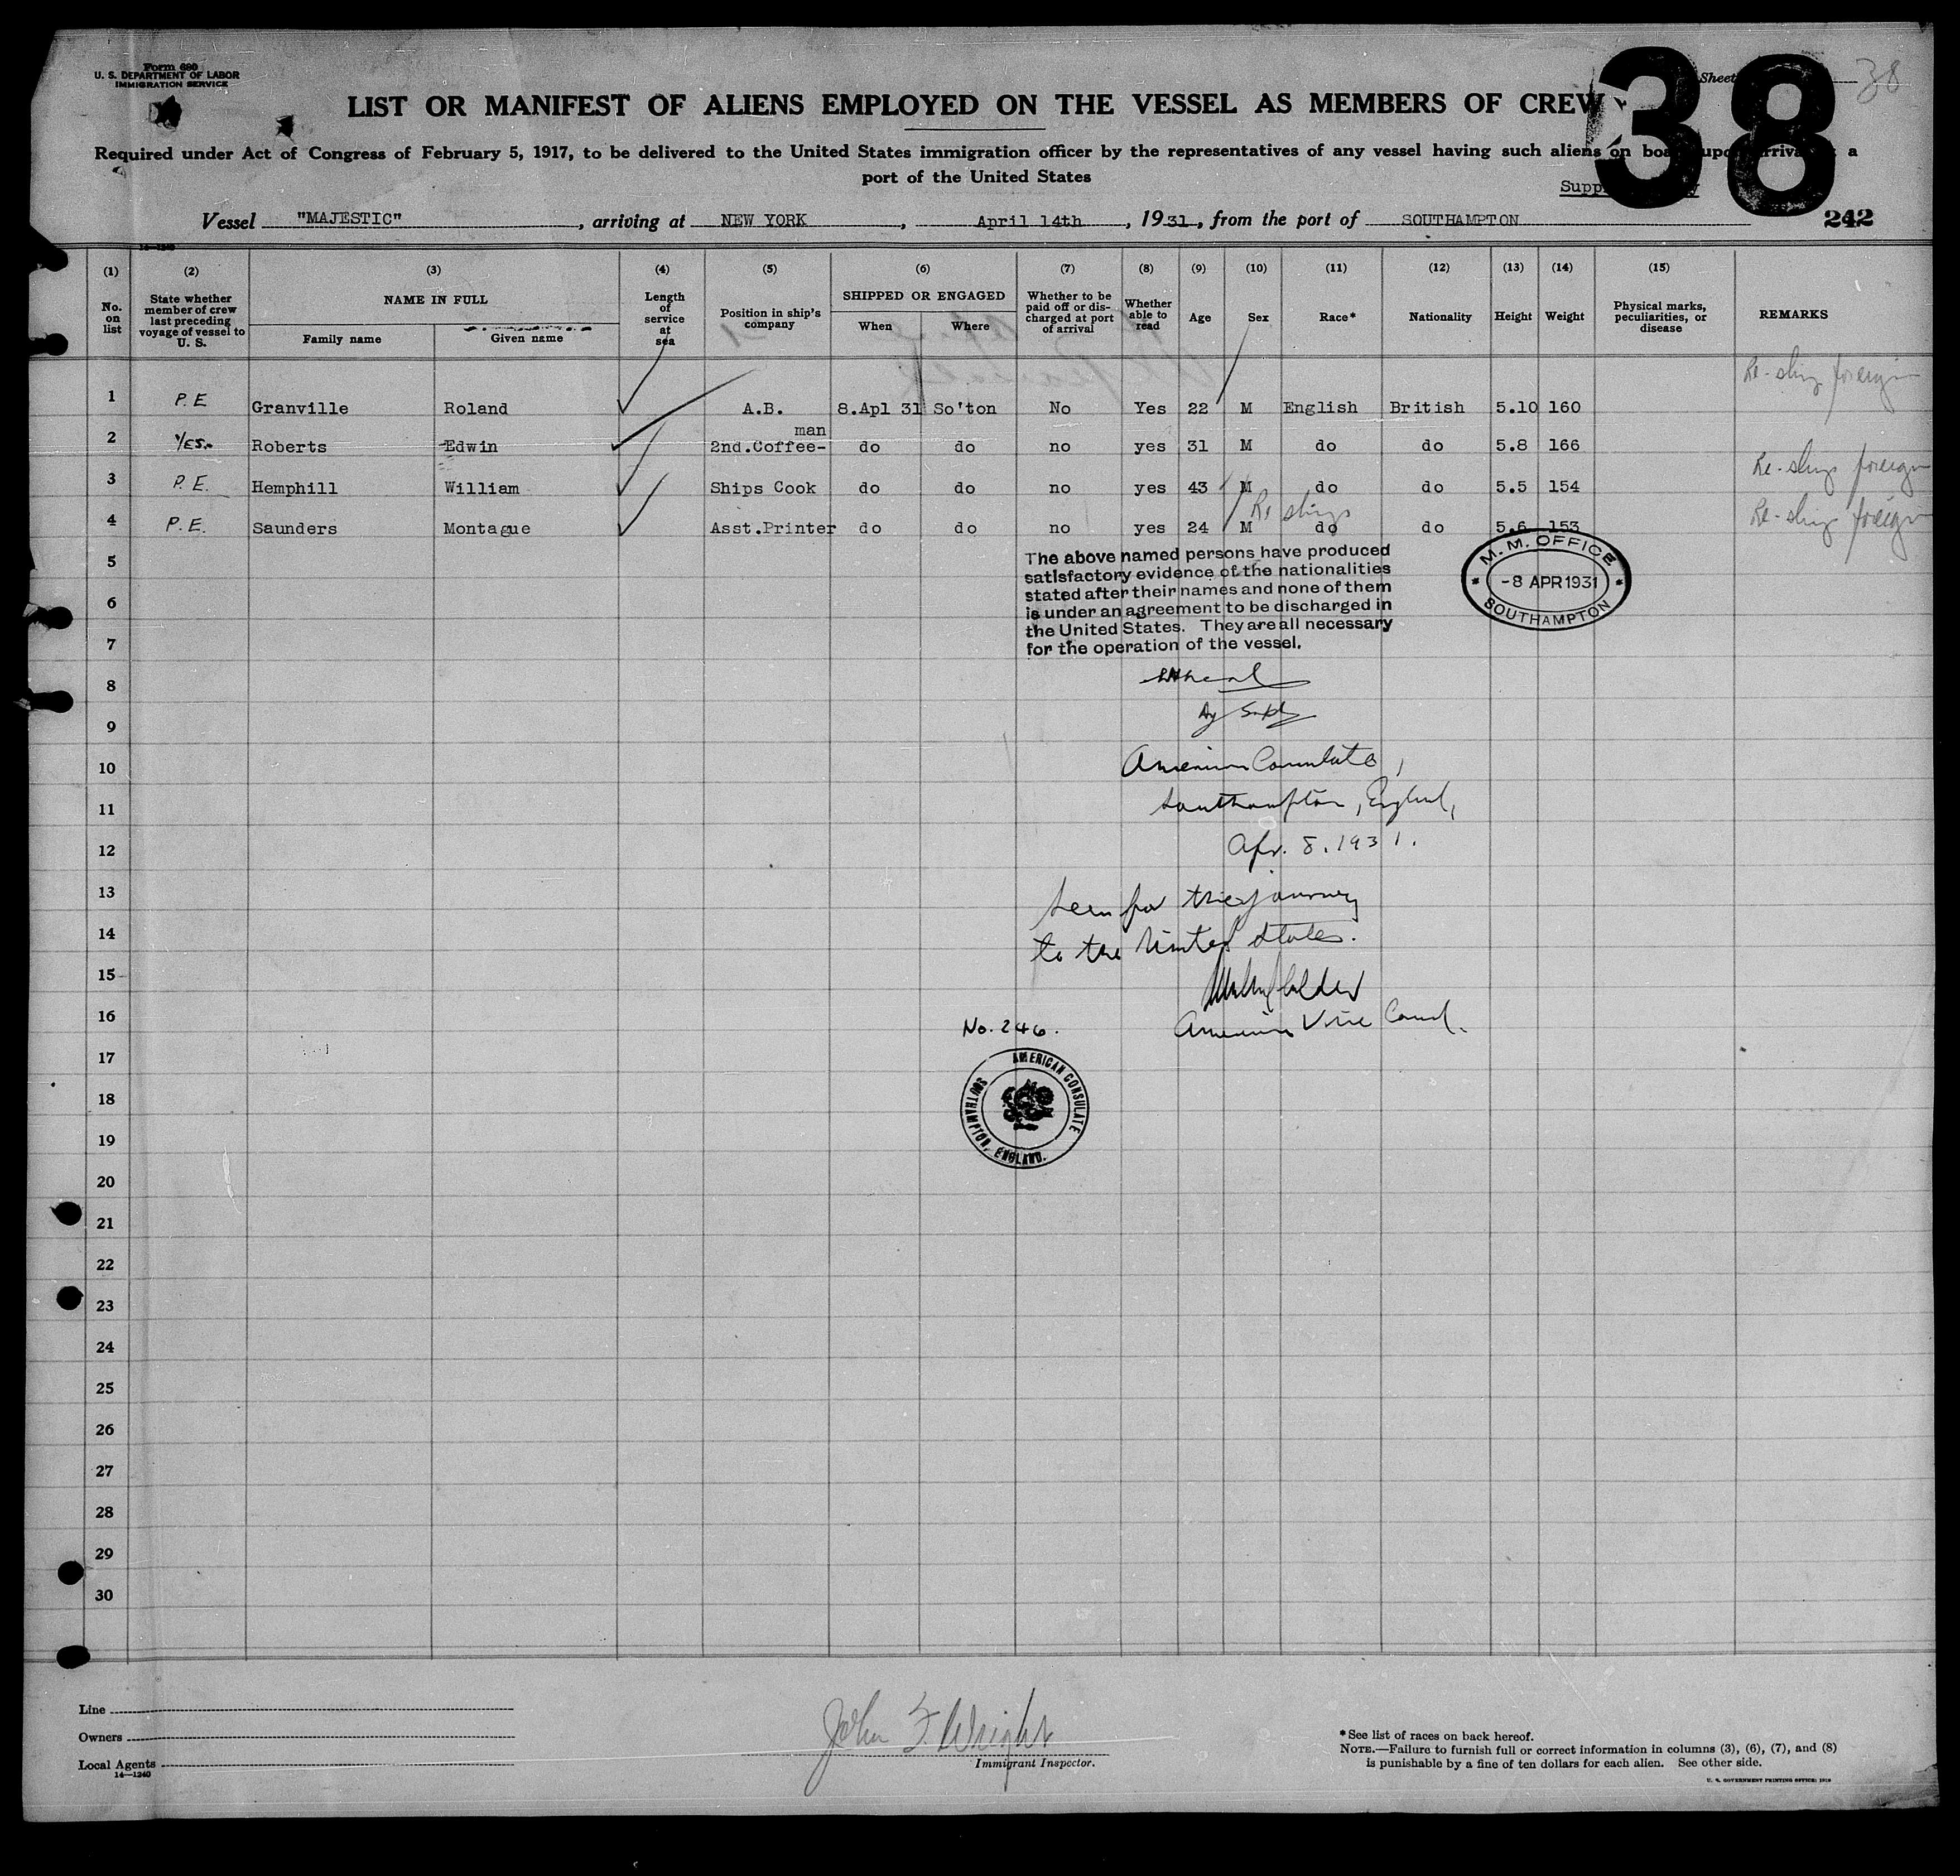 Form 680
U. S. DEPARTMENT OF LABOR
IMMIGRATION SERVICE
Sheet 38
38
LIST OR MANIFEST OF ALIENS EMPLOYED ON THE VESSEL AS MEMBERS OF CREW
Required under Act of Congress of February 5, 1917, to be delivered to the United States immigration officer by the representatives of any vessel having such aliens on board upon arrival at a
port of the United States
Vessel "MAJESTIC", arriving at NEW YORK, April 14th, 1931, from the port of SOUTHAMPTON
242
14-1240
(1) (2) (3) (4) (5) (6) (7) (8) (9) (10) (11) (12) (13) (14) (15)
No. on list
State whether member of crew last preceding voyage of vessel to U. S.
NAME IN FULL
Family name Given name
Length of service at sea
Position in ship's company
SHIPPED OR ENGAGED
When Where
Whether to be paid off or discharged at port of arrival
Whether able to read
Age Sex Race* Nationality Height Weight
Physical marks, peculiarities, or disease
REMARKS
1 P.E Granville Roland A.B. 8.Apl 31 So'ton No Yes 22 M English British 5.10 160 Re-ship foreign
2 Yes. Roberts Edwin 2nd.Coffee-man do do no yes 31 M do do 5.8 166
3 P.E. Hemphill William Ships Cook do do no yes 43 M do do 5.5 154 Re-ship foreign
Re ships
4 P.E. Saunders Montague Asst.Printer do do no yes 24 M do do 5.6 153 Re-ship foreign
5
6
7
8
9
10
11
12
13
14
15
16
17
18
19
20
21
22
23
24
25
26
27
28
29
30
The above named persons have produced
satisfactory evidence of the nationalities
stated after their names and none of them
is under an agreement to be discharged in
the United States. They are all necessary
for the operation of the vessel.
M. M. OFFICE
-8 APR 1931
SOUTHAMPTON
American Consulate,
Southampton, England,
Apr. 8. 1931.
Seen for the journey
to the United States.
American Vice Consul.
No. 246.
AMERICAN CONSULATE
SOUTHAMPTON, ENGLAND.
Line
Owners
Local Agents
14-1240
John F. Wright
Immigrant Inspector.
* See list of races on back hereof.
NOTE.—Failure to furnish full or correct information in columns (3), (6), (7), and (8)
is punishable by a fine of ten dollars for each alien. See other side.